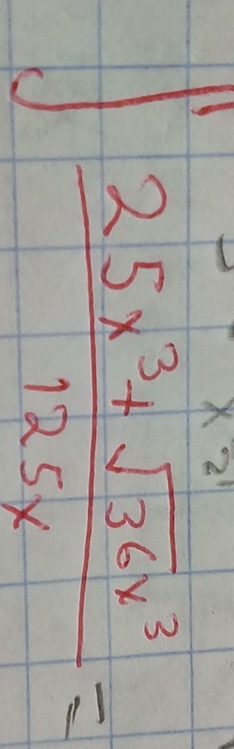 ∫ (25x³ + √(36x³)) / (125x) =
x²